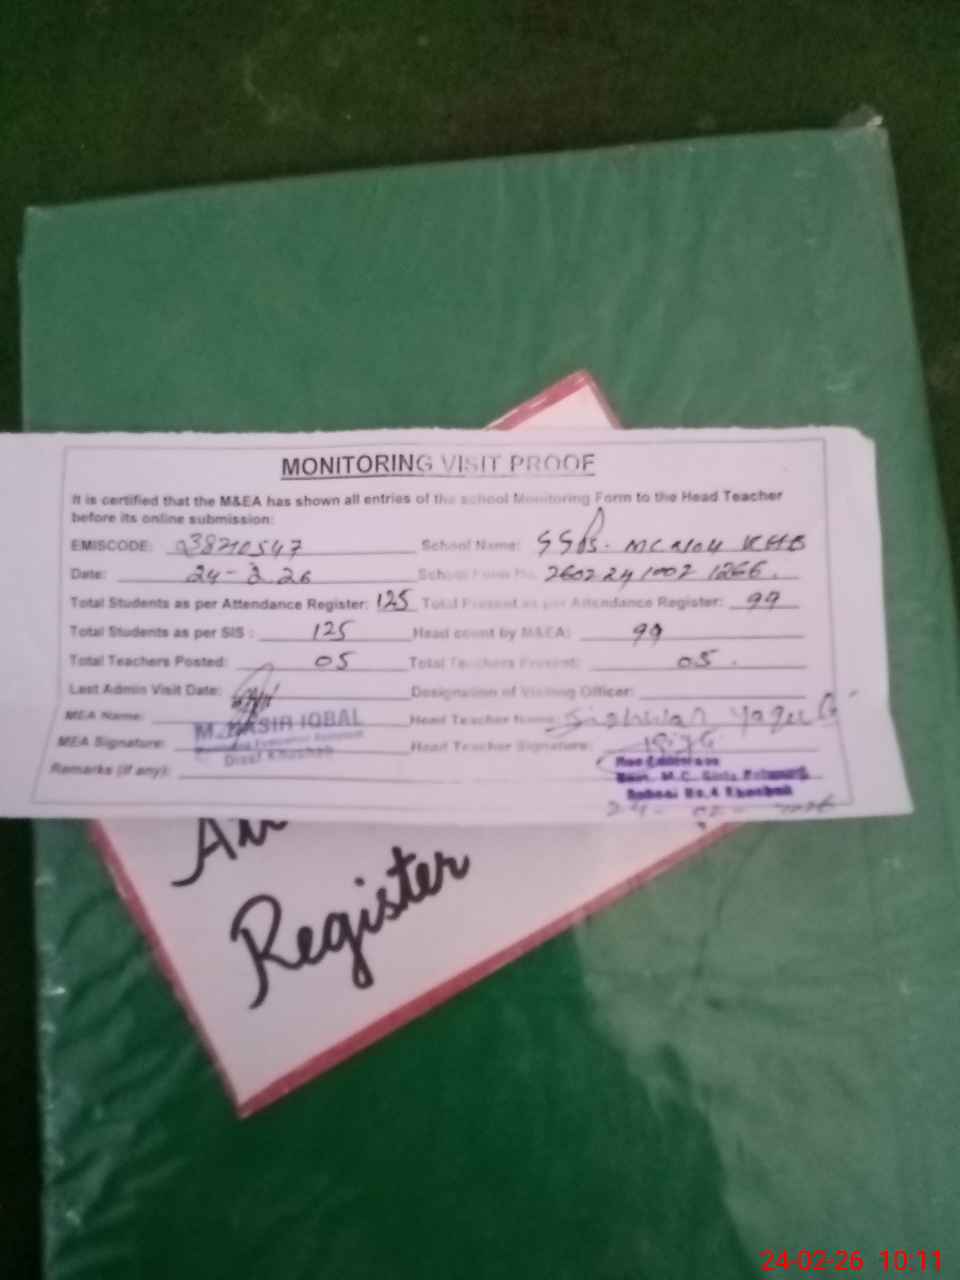 MONITORING VISIT PROOF
It is certified that the M&EA has shown all entries of the school Monitoring Form to the Head Teacher
before its online submission:
EMISCODE: 38210547 School Name: MC No 4 KHB
Date: 24-2-26 School Form No. 2602241002 1266.
Total Students as per Attendance Register: 125 Total Present as per Attendance Register: 99
Total Students as per SIS : 125 Head count by M&EA: 99
Total Teachers Posted: 05 Total Teachers Present: 05.
Last Admin Visit Date: Designation of Visiting Officer:
MEA Name: M. NASIR IQBAL Head Teacher Name:
MEA Signature: Monitoring Evaluation Assistant Head Teacher Signature:
Distt Khushab
Remarks (if any):
M.C. Girls
School No.4 Khushab
24-02-2026
Register
24-02-26 10:11